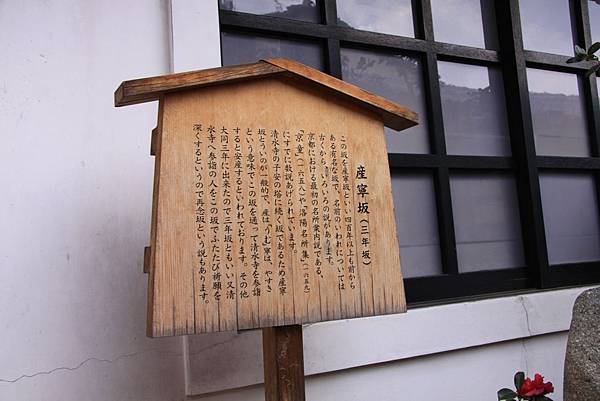 産寧坂（三年坂）
この坂を産寧坂といい四百年以上も前から
ある有名な坂で、名前のいわれについては
古くからいろいろの説があります。
京都における最初の名所案内説である、
「京童」（一六五八）や「洛陽名所集」（一六五九）
にすでに数説あげられています。
清水寺の子安の塔に続く坂であるため産寧
坂とういのが一般的で、産は「うむ」寧は、やすき
という意味でこの坂を通って清水寺を参詣
すると安産するといわれております。その他
大同三年に出来たので三年坂ともいい又清
水寺へ参詣の人をこの坂でふたたび祈願を
深くするというので再念坂という説もあります。